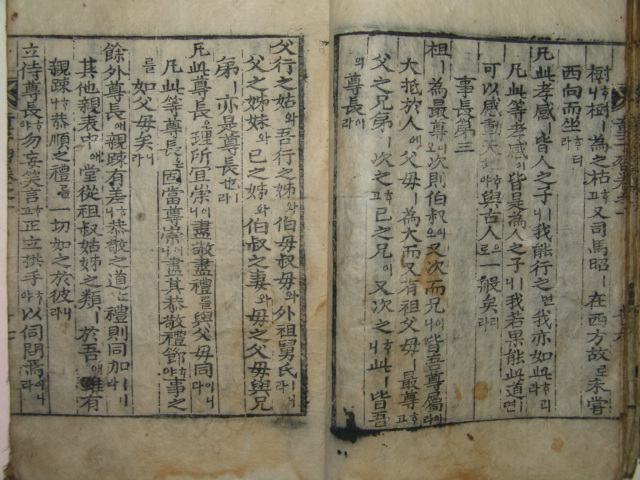 樹니樹ㅣ爲之枯고又司馬昭ㅣ在西方故로未嘗
西向而坐라
凡此孝感ㅣ皆人之子니我能行之면我亦如此라
凡此等孝感이皆是爲人之子니我若果能此道면
可以感動天야與古人로一般矣리라
事長第三
祖ㅣ爲最尊오次則伯叔오又次而兄니皆吾尊屬이라
大抵於人에父母ㅣ爲大而又有祖父母ㅣ最尊고
父之兄弟ㅣ次之고己之兄이又次之니此ㅣ皆吾
의尊長이라
父行之姑와吾行之姊와伯母叔母와外祖舅氏라
父之姊妹와己之姊와伯叔之妻와母之父母與兄
弟ㅣ亦是尊長也라
凡此尊長은理所宜崇이니盡敬盡禮를與父母同이니라
凡此等尊長을因當尊崇니盡其恭敬禮節야事之
를如父母矣니라
餘外尊長애親踈有差나恭敬之道ㄴ禮則同加ㅣ니라
其他親表中애堂從祖叔姑姊之類ㅣ於吾애雖有
親踈나恭順之禮를一切如之於彼니라
立侍尊長야勿妄笑言고正立拱手야以伺問焉이니라